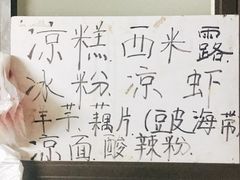 凉糕 西米露
冰粉 凉虾
羊芋 藕片 (豆皮 海带
凉面 酸辣粉